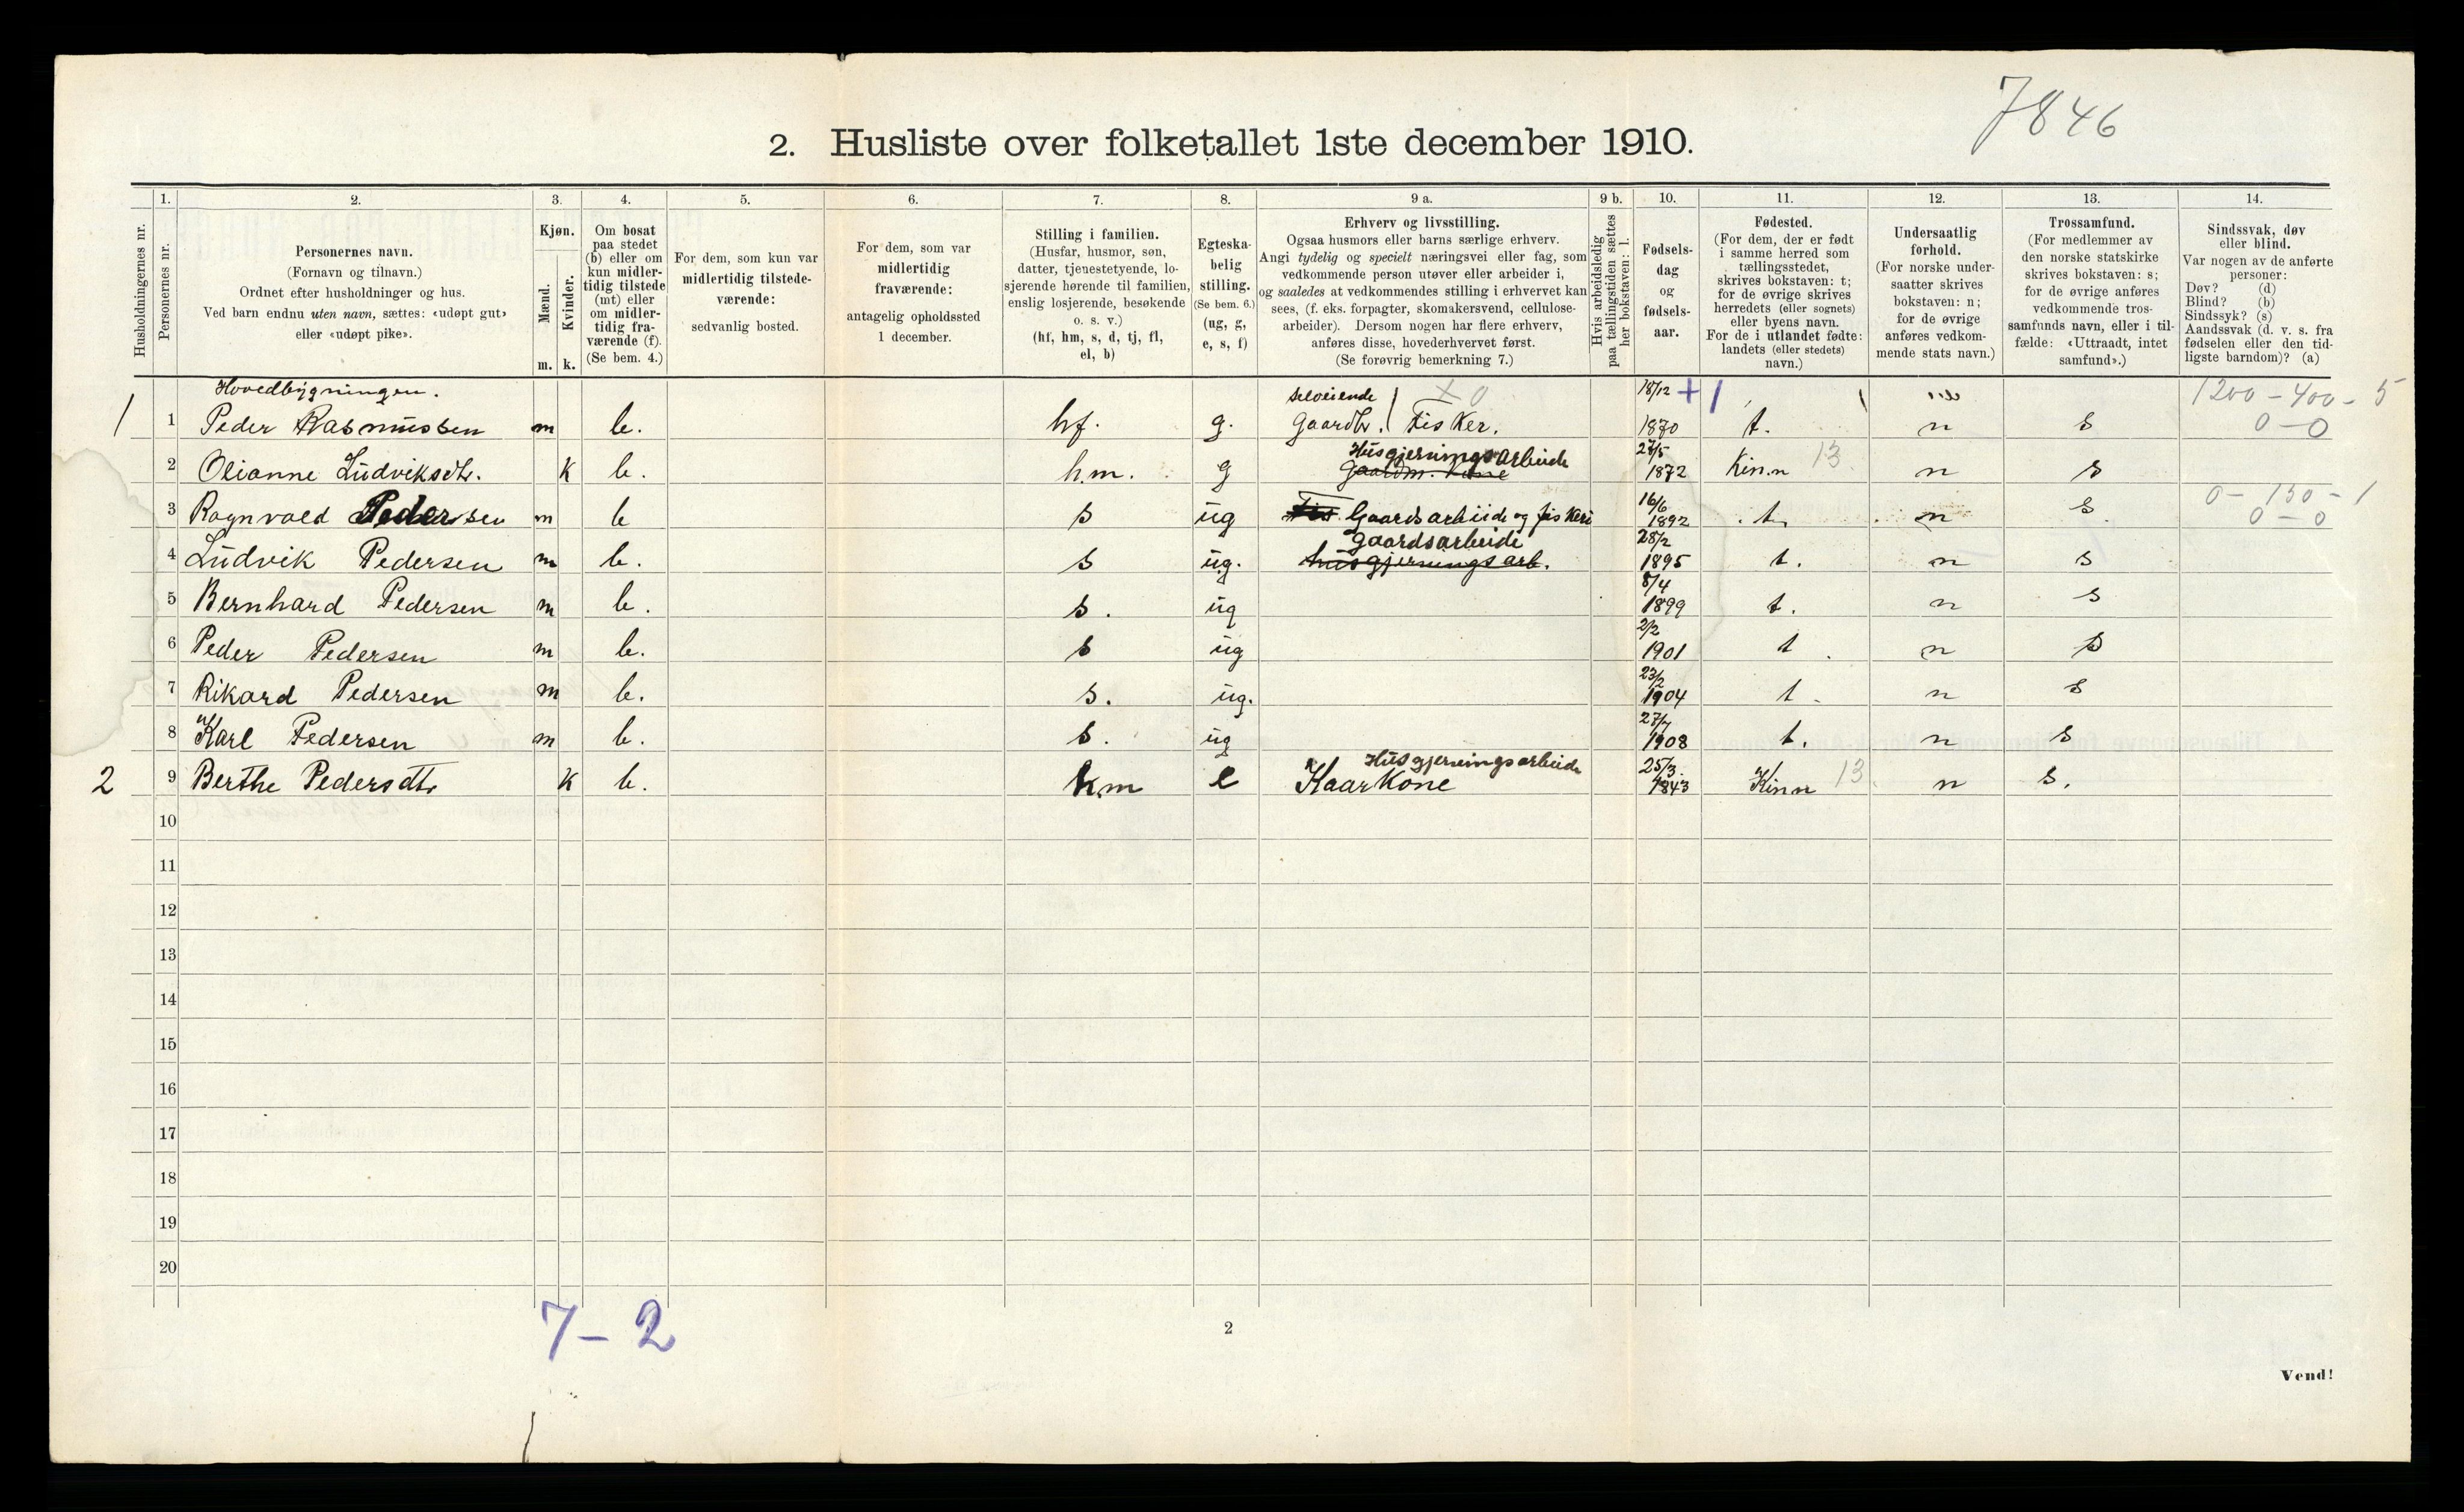 7846
2. Husliste over folketallet 1ste december 1910.
Husholdningernes nr.
1.
Personernes nr.
2.
Personernes navn.
(Fornavn og tilnavn.)
Ordnet efter husholdninger og hus.
Ved barn endnu uten navn, sættes: «udøpt gut»
eller «udøpt pike».
3.
Kjøn.
Mænd.
Kvinder.
m. k.
4.
Om bosat
paa stedet
(b) eller om
kun midler-
tidig tilstede
(mt) eller
om midler-
tidig fra-
værende (f).
(Se bem. 4.)
5.
For dem, som kun var
midlertidig tilstede-
værende:
sedvanlig bosted.
6.
For dem, som var
midlertidig
fraværende:
antagelig opholdssted
1 december.
7.
Stilling i familien.
(Husfar, husmor, søn,
datter, tjenestetyende, lo-
sjerende hørende til familien,
enslig losjerende, besøkende
o. s. v.)
(hf, hm, s, d, tj, fl,
el, b)
8.
Egteska-
belig
stilling.
(Se bem. 6.)
(ug, g,
e, s, f)
9 a.
Erhverv og livsstilling.
Ogsaa husmors eller barns særlige erhverv.
Angi tydelig og specielt næringsvei eller fag, som
vedkommende person utøver eller arbeider i,
og saaledes at vedkommendes stilling i erhvervet kan
sees, (f. eks. forpagter, skomakersvend, cellulose-
arbeider). Dersom nogen har flere erhverv,
anføres disse, hovederhvervet først.
(Se forøvrig bemerkning 7.)
9 b.
Hvis arbeidsledig
paa tællingstiden sættes
her bokstaven: l.
10.
Fødsels-
dag
og
fødsels-
aar.
11.
Fødested.
(For dem, der er født
i samme herred som
tællingsstedet,
skrives bokstaven: t;
for de øvrige skrives
herredets (eller sognets)
eller byens navn.
For de i utlandet fødte:
landets (eller stedets)
navn.)
12.
Undersaatlig
forhold.
(For norske under-
saatter skrives
bokstaven: n;
for de øvrige
anføres vedkom-
mende stats navn.)
13.
Trossamfund.
(For medlemmer av
den norske statskirke
skrives bokstaven: s;
for de øvrige anføres
vedkommende tros-
samfunds navn, eller i til-
fælde: «Uttraadt, intet
samfund».)
14.
Sindssvak, døv
eller blind.
Var nogen av de anførte
personer:
Døv? (d)
Blind? (b)
Sindssyk? (s)
Aandssvak (d. v. s. fra
fødselen eller den tid-
ligste barndom)? (a)
Hovedbygningen. selveiende X 0 18/12 + 1 1200 - 400 - 5
1 1 Peder Rasmussen m b. hf. g. Gaardbr. Fisker. 1870 t. n s 0 - 0
Husgjerningsarbeide 27/5
2 Olianne Ludviksdtr. k b. hm. g Gaardm. Kone 1872 Kinn 13 n s
16/6 0 - 150 - 1
3 Ragnvald Pedersen m b s ug Fis. Gaardsarbeide og fiskeri 1892 t. n s 0 - 0
gaardsarbeide 28/2
4 Ludvik Pedersen m b. s ug. husgjerningsarb. 1895 t. n s
8/4
5 Bernhard Pedersen m b. s. ug 1899 t. n s
2/2
6 Peder Pedersen m b. s ug 1901 t n s
23/2
7 Rikard Pedersen m b. s. ug. 1904 t n s
8 Karl Pedersen m b. s. ug 1908 t. n s
Husgjerningsarbeide 25/3
2 9 Berthe Pedersdtr k b. hm e Kaarkone 1843 Kinn 13 n s.
10
11
12
13
14
15
16
17
18
19
20
7 - 2
2
Vend!